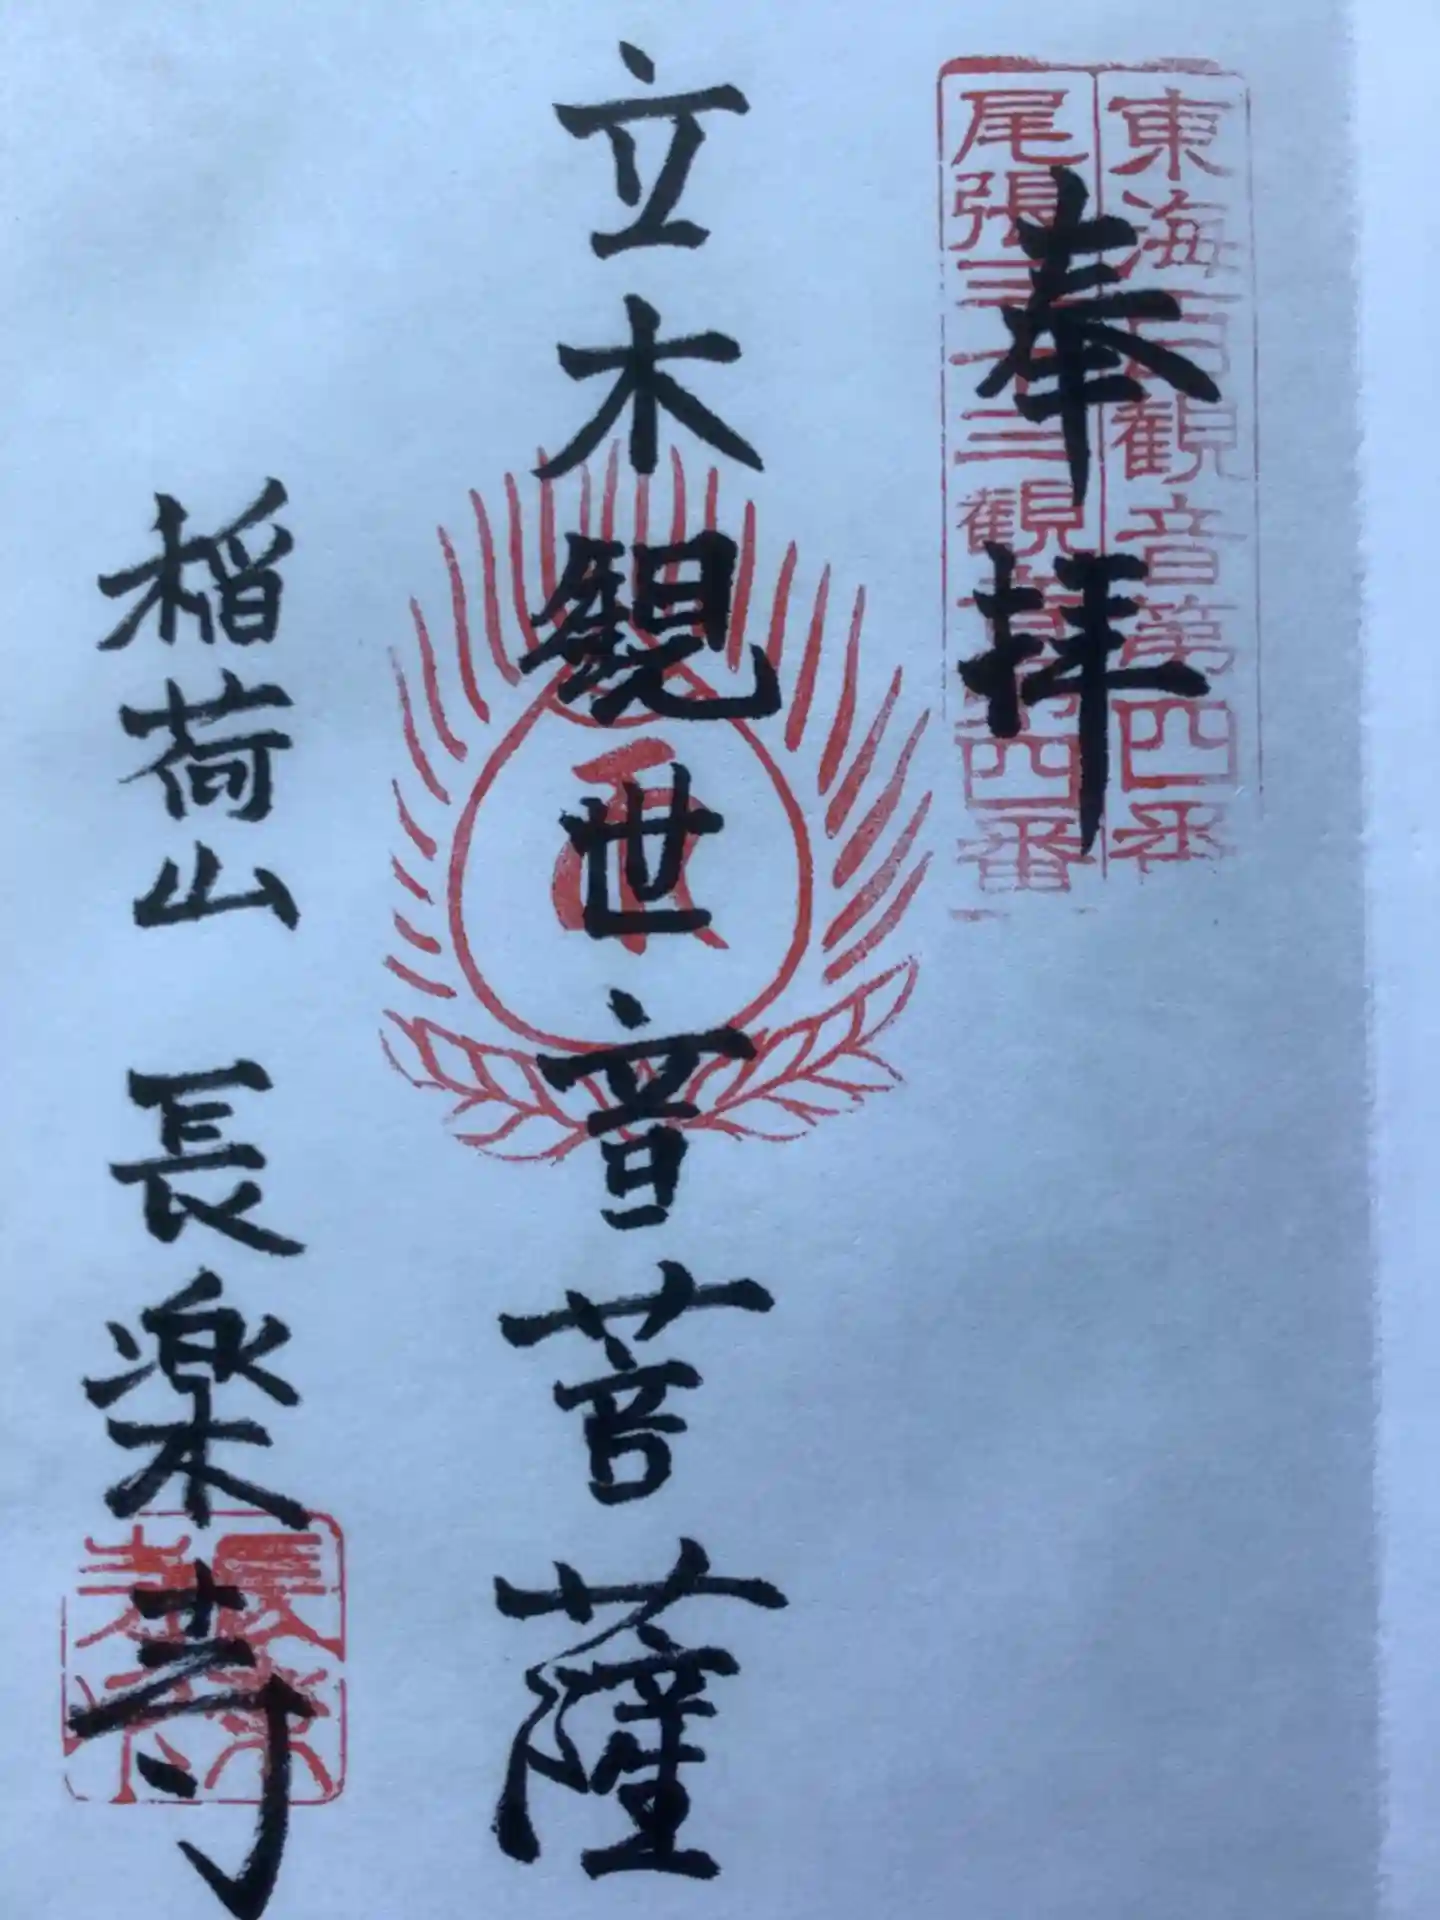 奉拝
東海百観音第四番
尾張三十三観音第四番
立木観世音菩薩
稲荷山 長楽寺